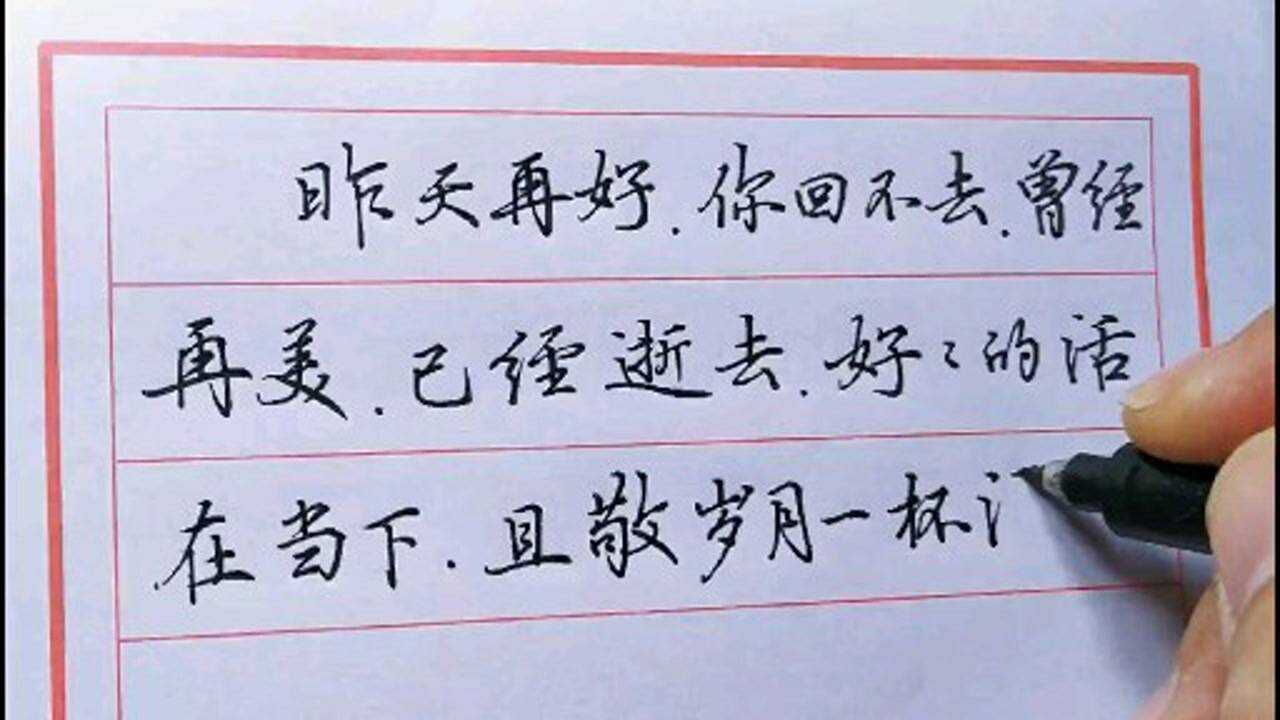 昨天再好.你回不去.曾经
再美.已经逝去.好々的活
在当下.且敬岁月一杯